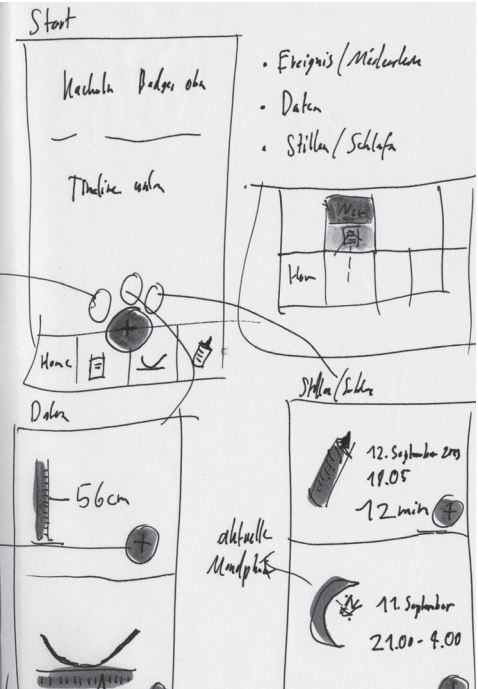 Start
Badges oben
Timeline unten
+
Home
• Ereignis/Meilenstein
• Daten
• Stillen/Schlafen
Daten
56cm
+
Stillen/
12. September
18.05
12min
+
aktuelle
Mondphase
11. September
21.00-4.00